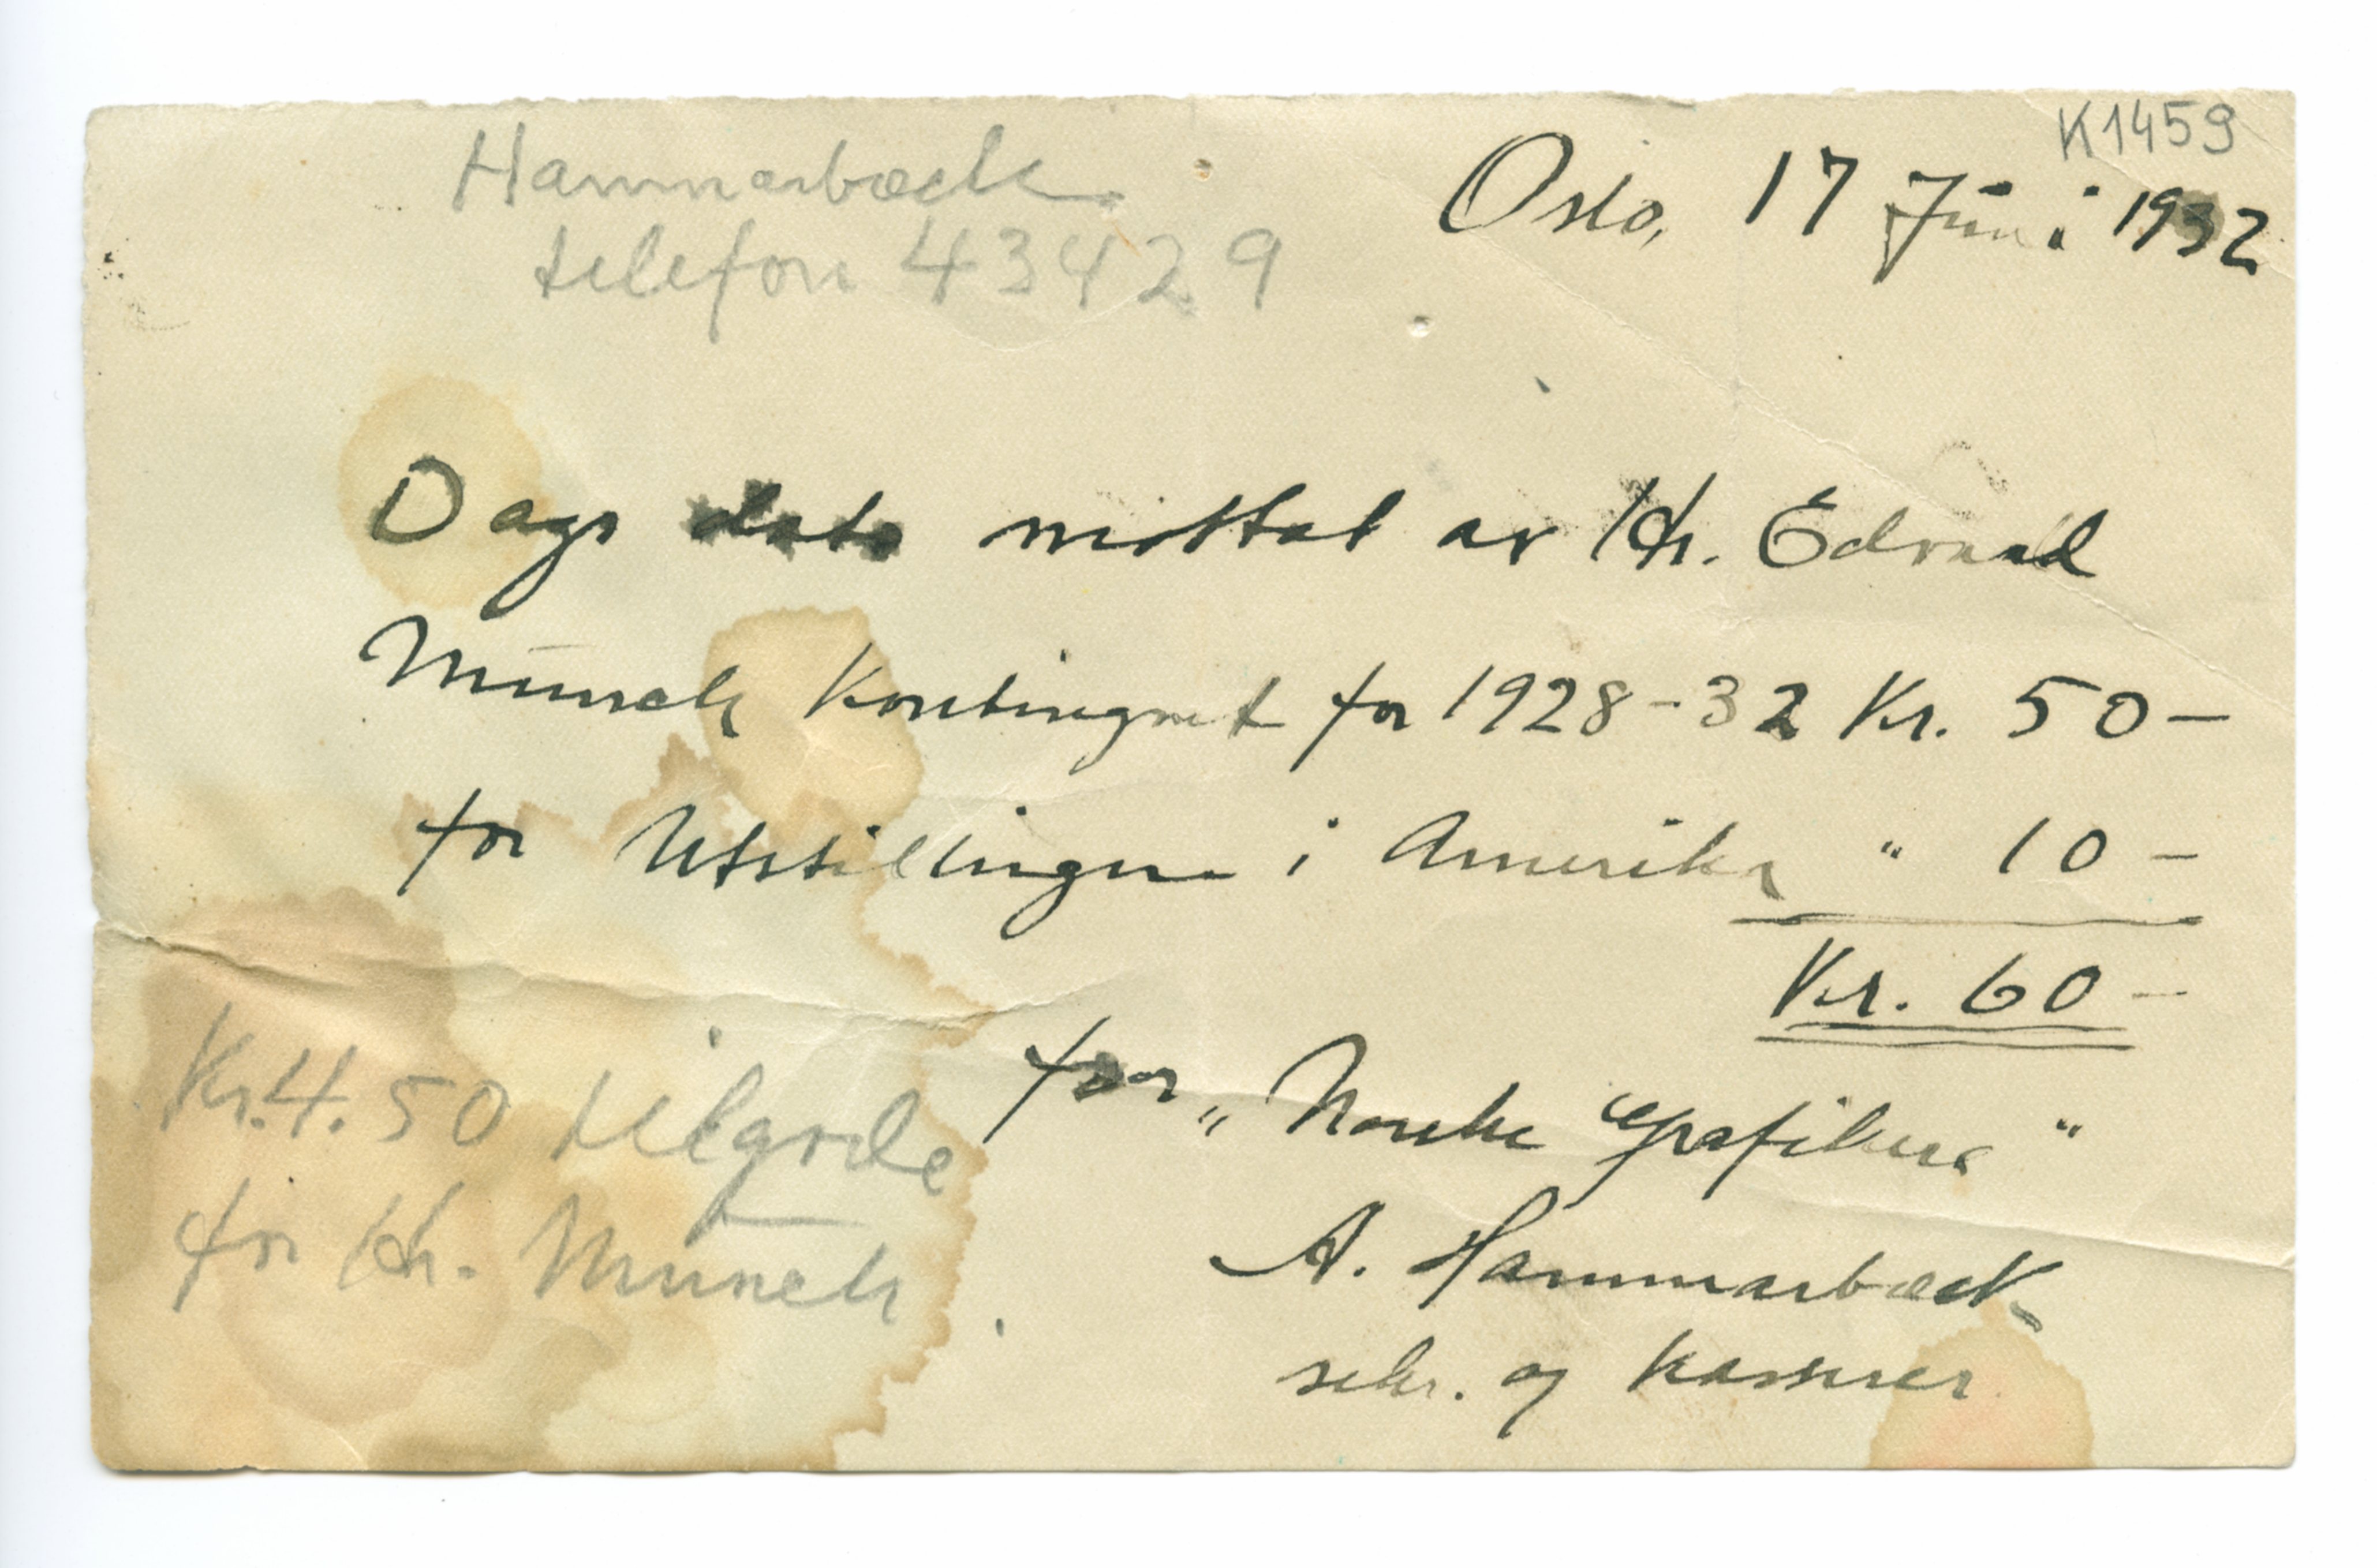 K1459
Hammarbæck
telefon 43429
Oslo, 17 Juni 1932
Dags dato mottat av Hr. Edvard
Munch Kontingent for 1928-32 Kr. 50-
for Utstillingen i Amerika " 10-
Kr. 60-
for „Norske Grafikere“
A. Hammarbæck
sekr. og kasserer
Kr. 4.50 tilgode
for Hr. Munch